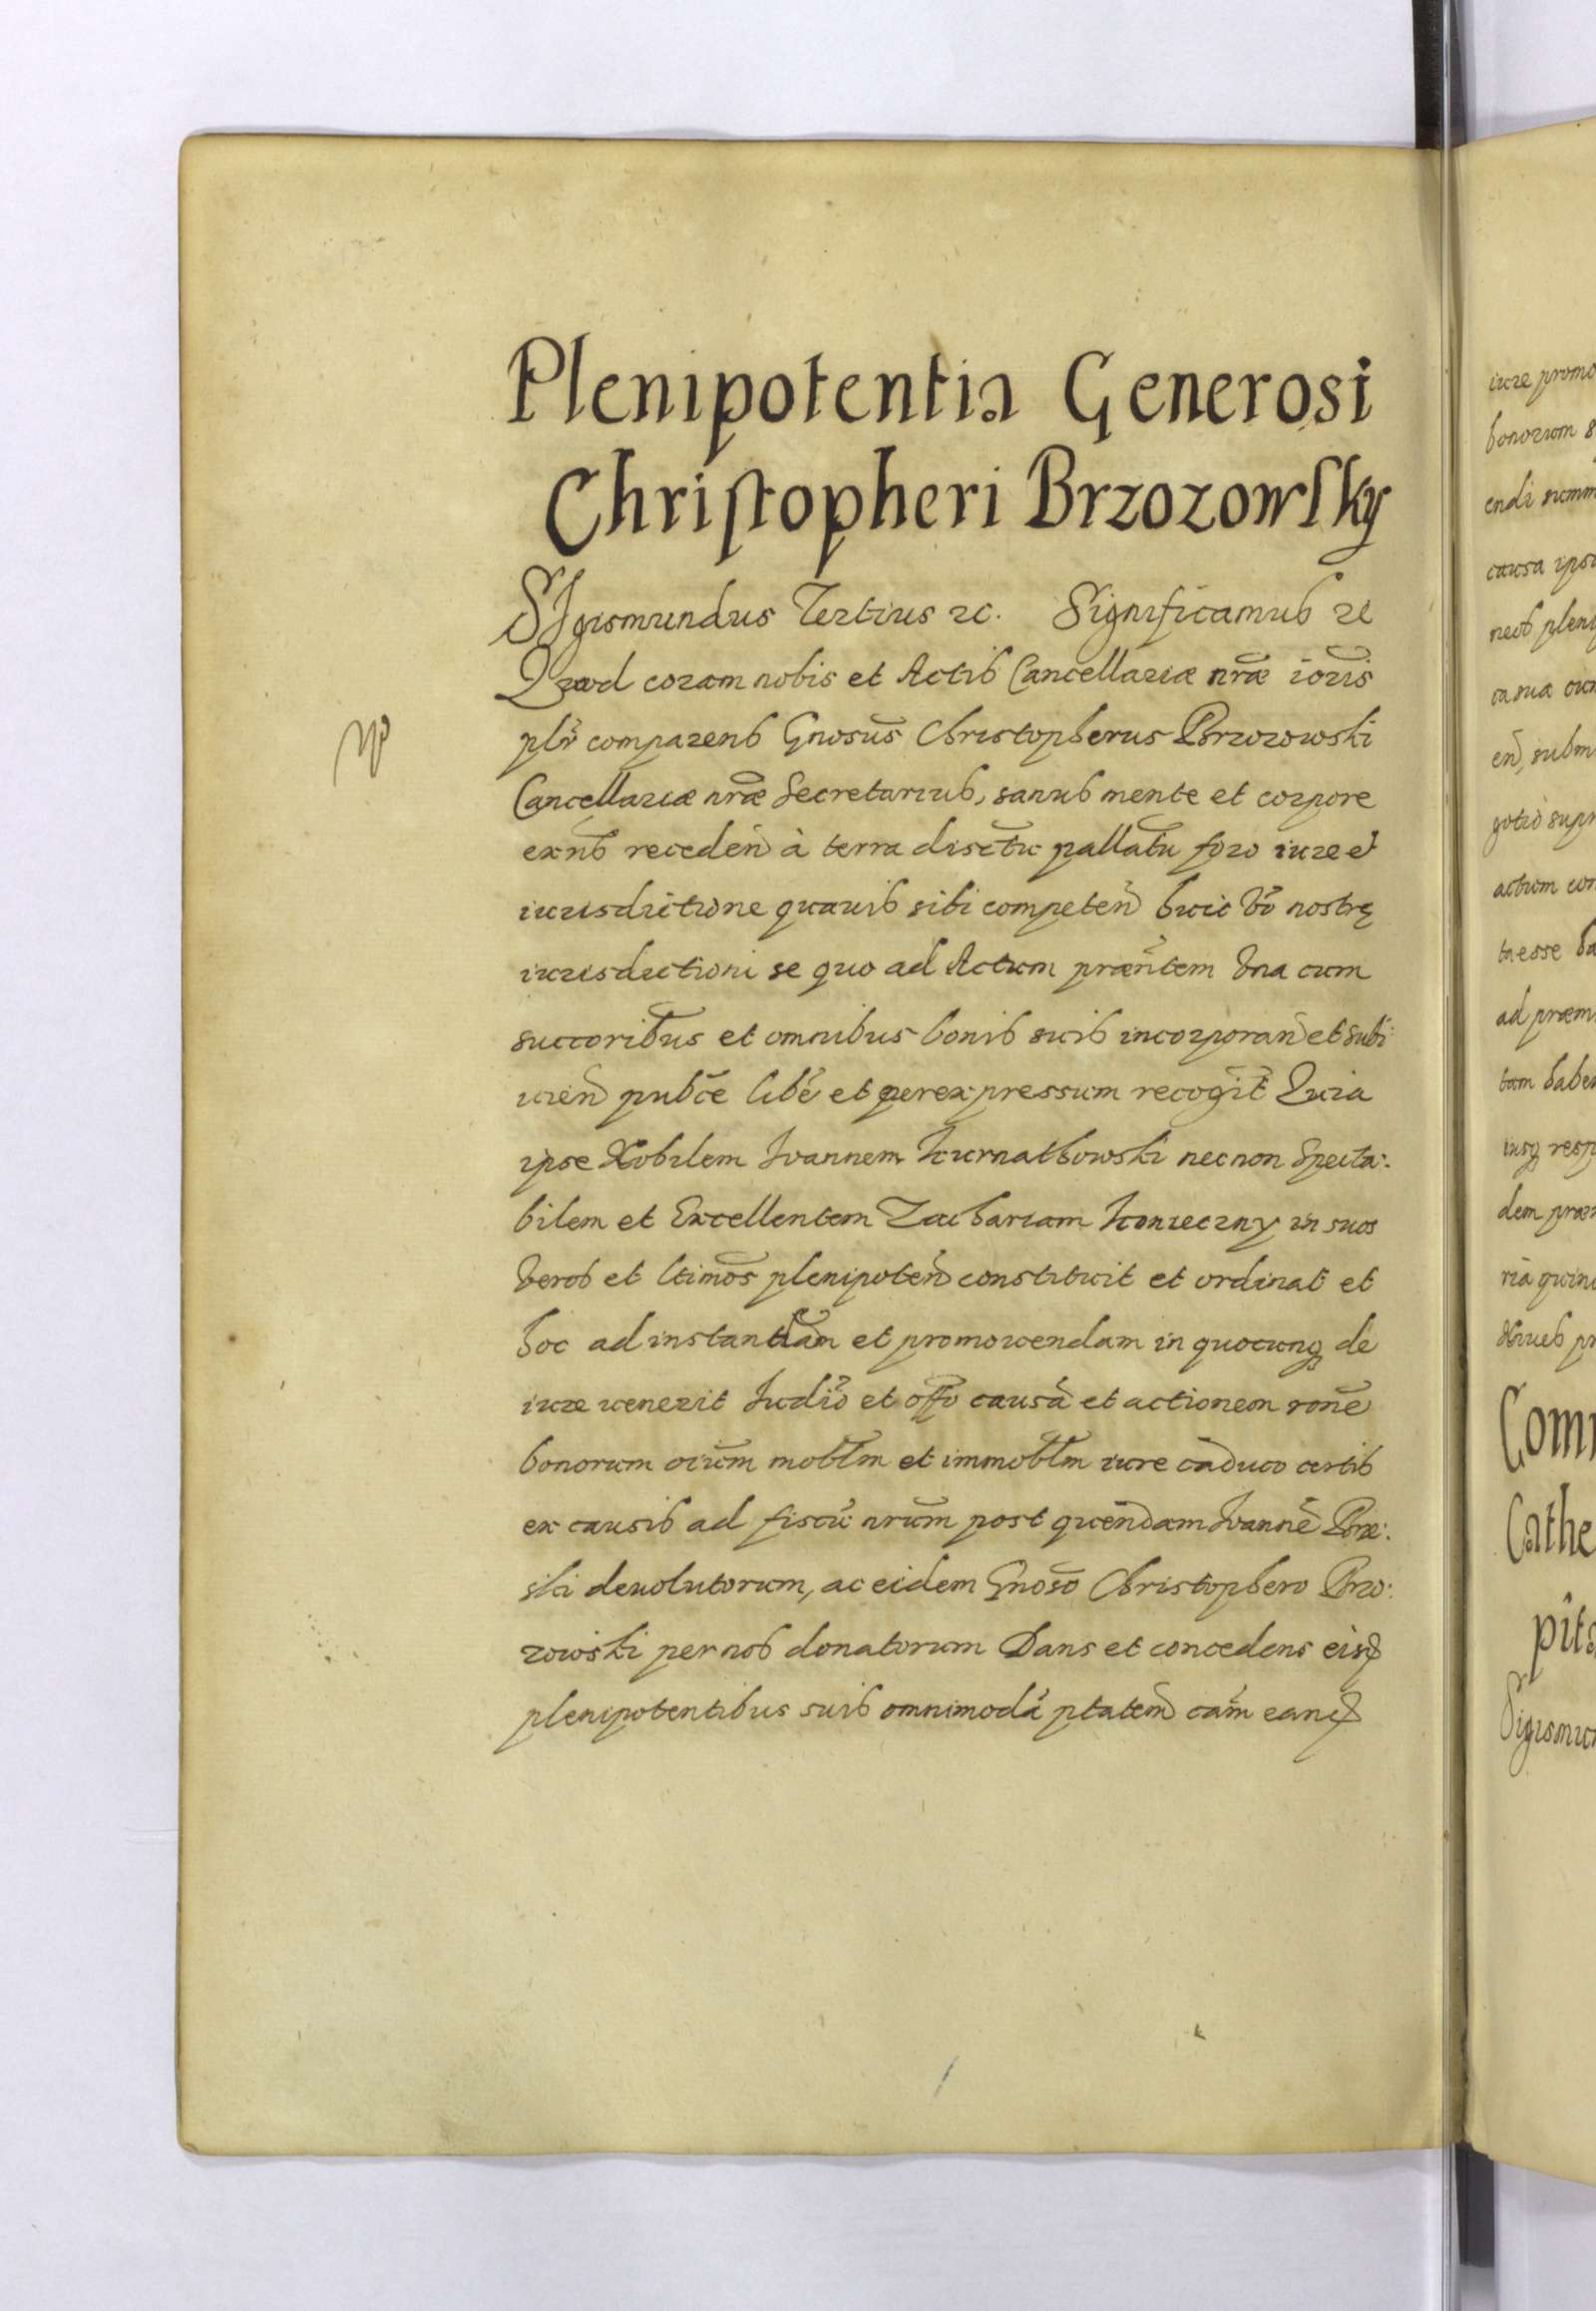 Plenipotentia Generosi
Christopheri Brzozowsky
SIgismundus Tertius ꝛc. Significamus ꝛc
Quod coram nobis et Actis Cancellariæ nr̃æ
plr̃ comparens Gnosũs Christopherus Brzozowski
Cancellariæ nr̃æ Secretarius, sanus mente et corpore
exñs recedeñ à terra disctũ pallatũ foro iure et
iurisdictione quauis sibi competeñ huic võ nostrę
iurisdictioni se quo ad Actum præñtem Vna cum
succoribũs et omnibus bonis suis incorporañ et subi:
icieñ pubc̃e libẽ et per expressum recogñit Quia
ipse Nobilem Ioannem Kurnathowski necnon Specta:
bilem et Excellentem Zachariam Konieczny in suos
Veros et ltimõs plenipoteñ constituit et ordinat et
hoc ad instantiam et promouendam in quocunq de
iure uenerit Iudiõ et offõ causã et actionem ronẽ
bonorum oĩum mobl̃m et immobl̃m iure caduco certis
ex causis ad fiscũ nrũm post quendam Ioannẽ
ski deuolutorum, ac eidem Gnosõ Christophero Brzo:
zowski per nos donatorum Dans et concedens eisd
plenipotentibus suis omnimodã ptatem̃ cãm eand
iure promo
bonorum s
endi summ
causa ipsi
neos pleni
submi
actum con
ta esse ha
ad præm
tam habe
dem præ
ria quin
Com
Cathe
pita
Sigismu